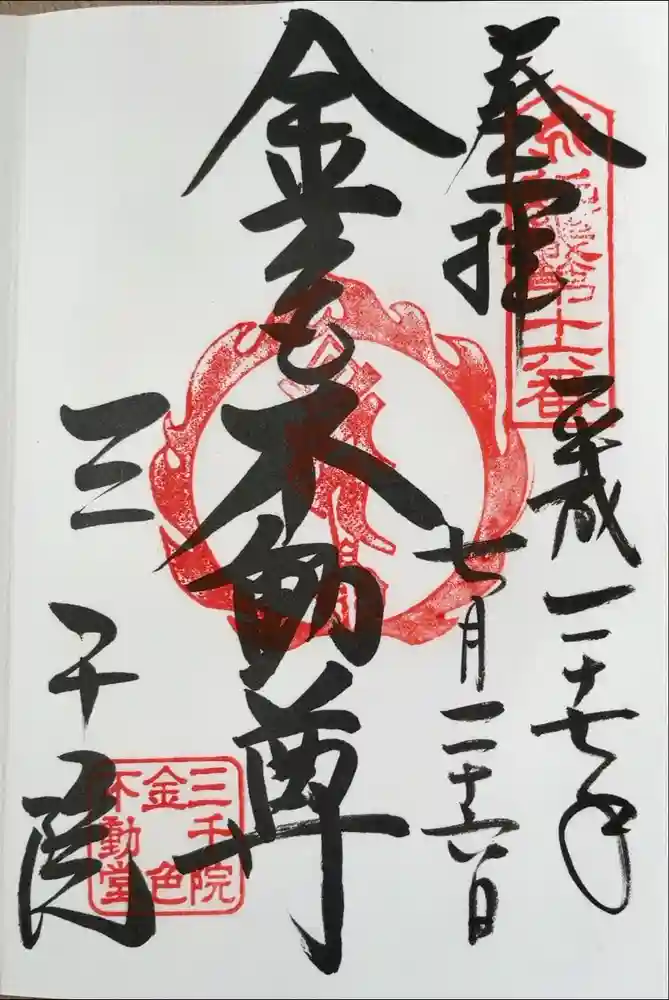 奉拝
平成二十七年
七月二十六日
金色不動尊
三千院
第十六番
三千院
金色
不動堂